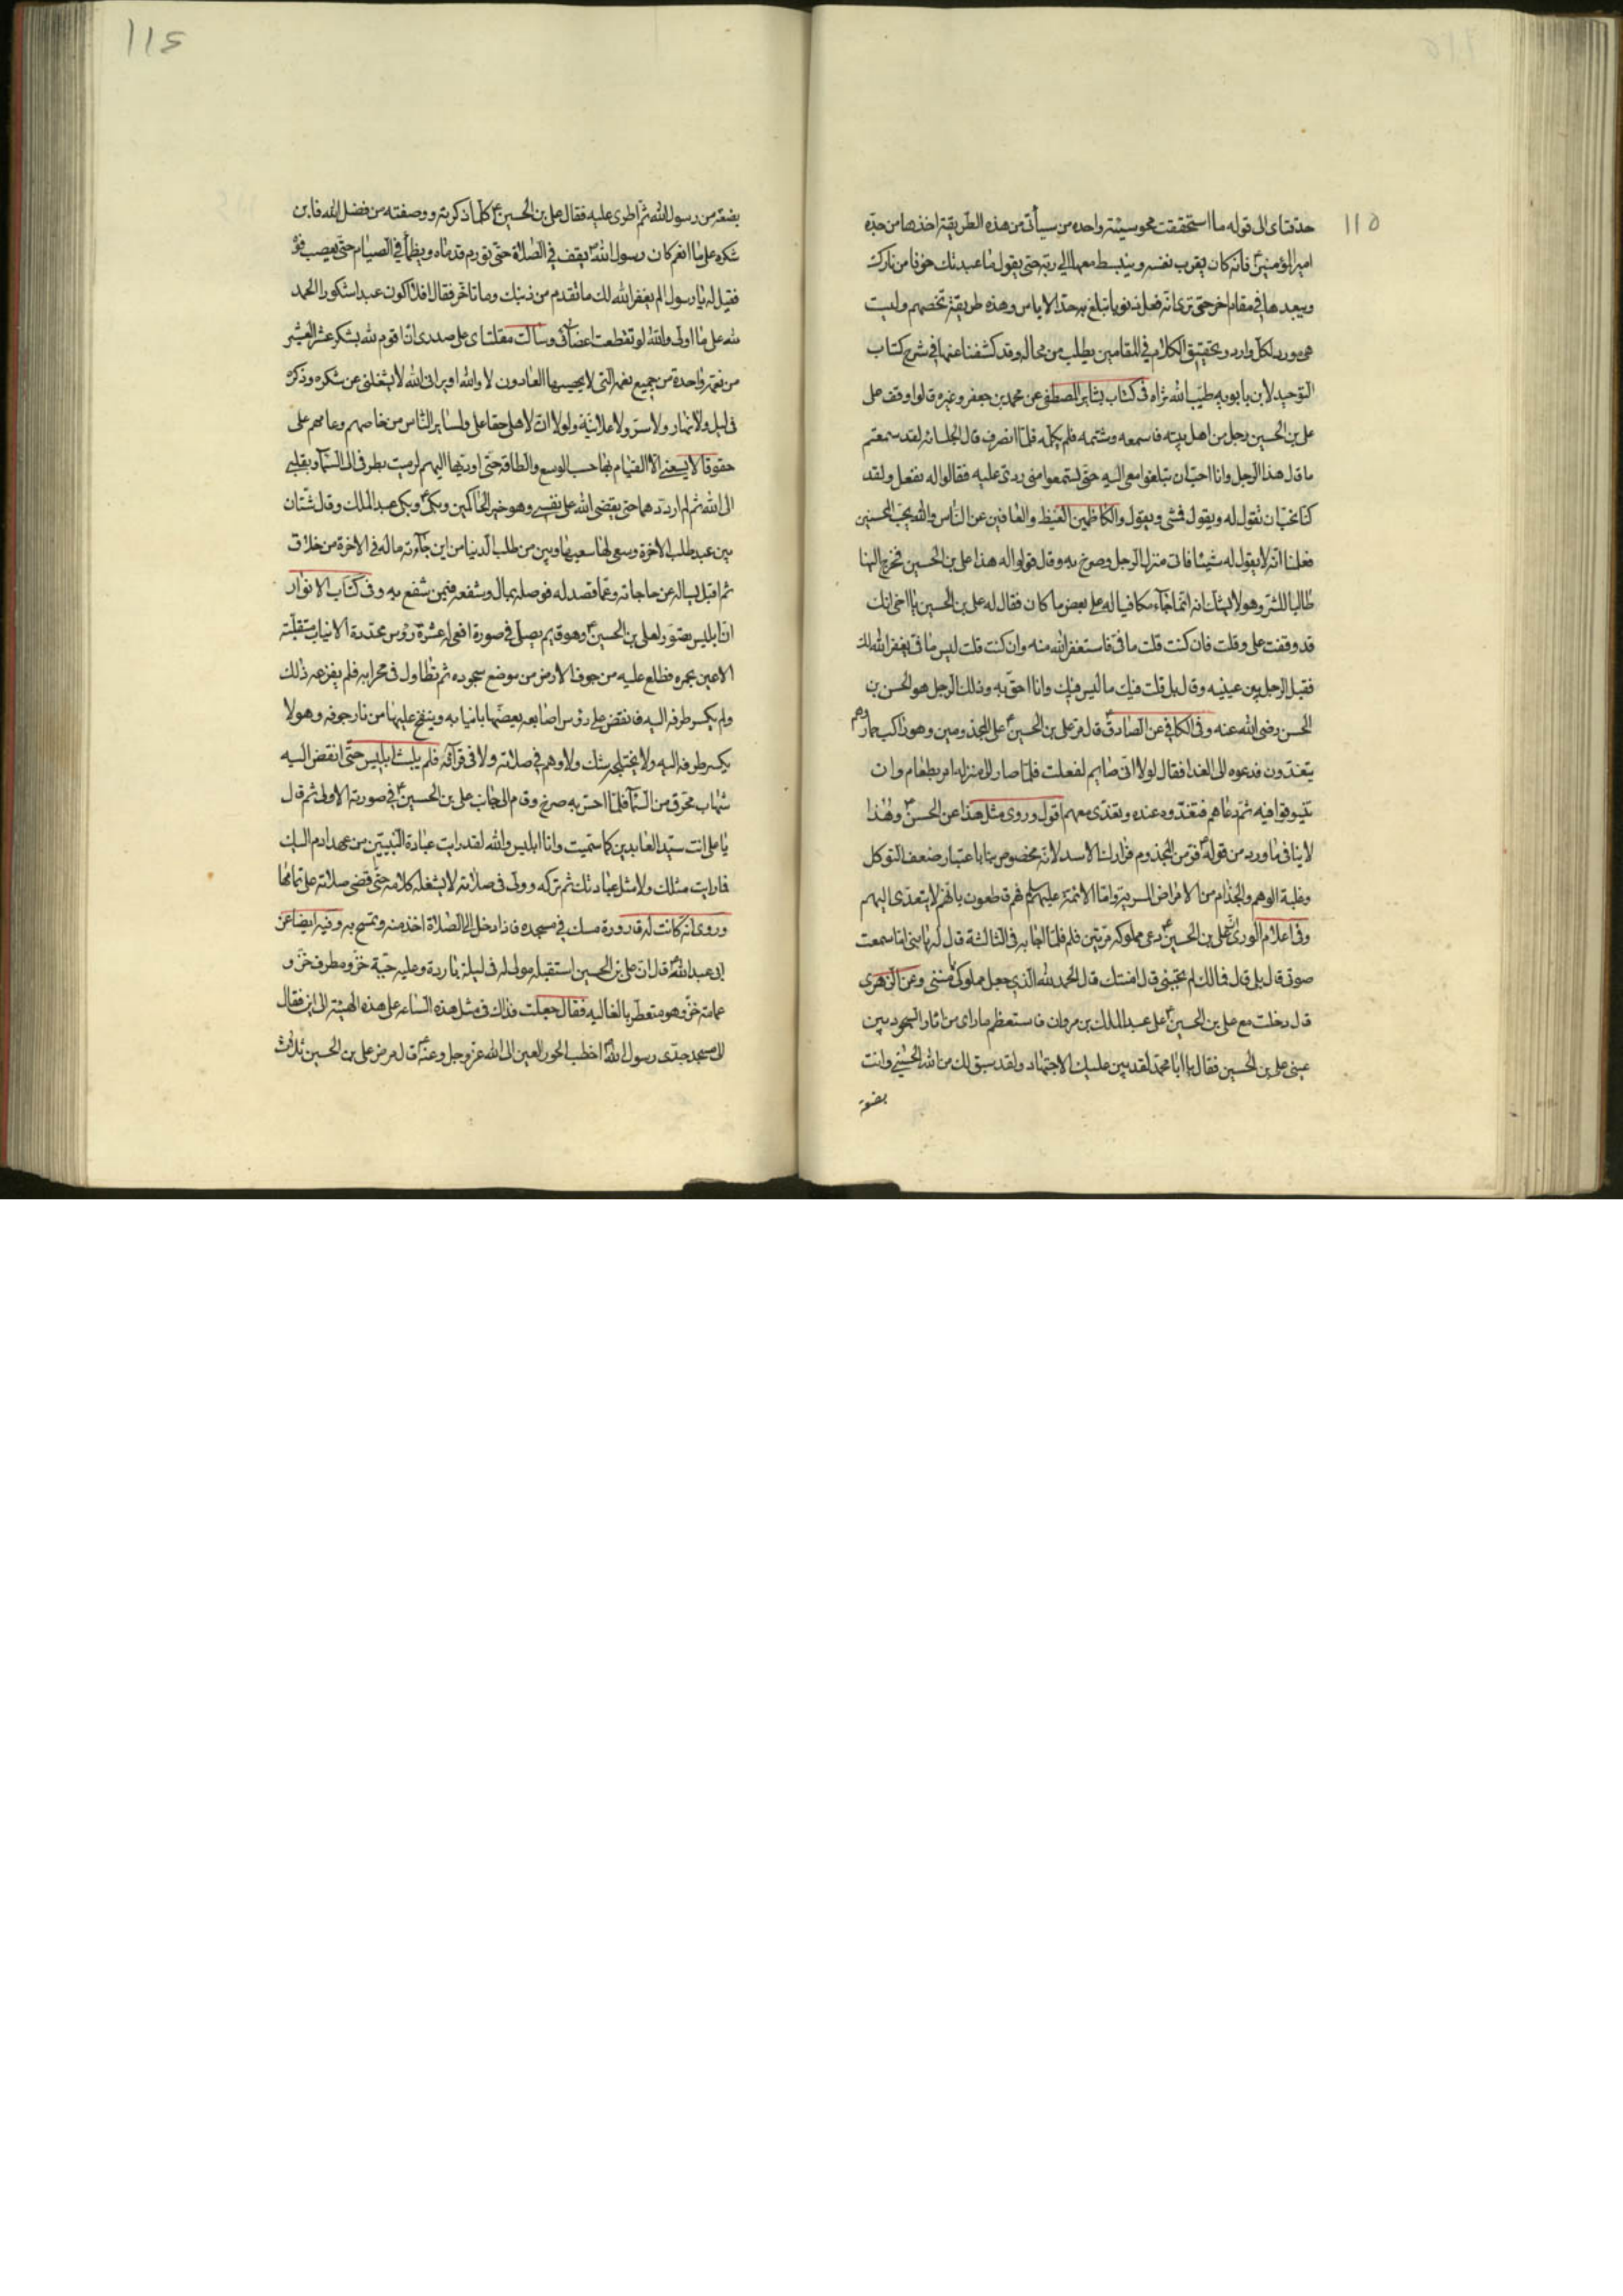 ١١٥
حدقتاى الى قوله ما استحققت محو سيئة واحده من سيأتى من هذه الطريقة اخذها من جدّه
امير المؤمنين ع فانه كان يقرب نفسه وينبسط معها الى ربّه حتى يقول ما عبدتك خوفا من نارك
ويبعدها فى مقام اخر حتى ترى انه فعل ذنوبا تبلغ به حدّ الاياس وهذه طريقة تخصهم وليست
هى مورد لكل وارد وتحقيق الكلام فى المقامين يطلب من محاله وقد كشفنا عنها فى شرح كتاب
التوحيد لابن بابويه طيّب الله ثراه فى كتاب بشاير المصطفى عن محمد بن جعفر وغيره قالوا وقف على
على بن الحسين رجل من اهل بيته فاسمعه وشتمه فلم يكلّمه فلمّا انصرف قال لجلسائه لقد سمعتم
ما قال هذا الرجل وانا احبّ ان تبلغوا معى اليه حتى تسمعوا منى ردّى عليه فقالوا له نفعل ولقد
كنا نحبّ ان نقول له ويقول فمشى ويقول والكاظمين الغيظ والعافين عن الناس والله يحبّ المحسنين
فعلمنا انّه لا يقول له شيئا فاتى منزل الرجل وصرخ به وقال قولوا له هذا على بن الحسين فخرج الينا
طالبا للشرّ وهو لا يشك انه انّما جاء مكافيا له على بعض ما كان فقال له على بن الحسين يا اخى انك
قد وقفت على وقلت فان كنت قلت ما فىّ فاستغفر الله منه وان كنت قلت ليس ما فىّ يغفر الله لك
فقبل الرجل بين عينيه وقال بل قلت فيك ما ليس فيك وانا احقّ به وذلك الرجل هو الحسن بن
الحسن رضى الله عنه وفى الكافى عن الصادق ع قال مرّ على بن الحسين ع على المجذومين وهو راكب حماره وهم
يتغدّون فدعوه الى الغدا فقال لولا انّى صايم لفعلت فلمّا صار الى منزله امر بطعام وان
يتنوقوا فيه ثمّ دعاهم فتغدّوه عنده وتغدّى معهم اقول وروى مثل هذا عن الحسن ع وهذا
لا ينافى ما ورد من قوله ع فرّ من المجذوم فرارك من الاسد لانّه مخصوص بنا باعتبار ضعف التوكل
وغلبة الوهم والجذام من الامراض المسرية وامّا الائمّة عليهم السلم فهم قاطعون بانّهم لا يتعدّى اليهم
وفى اعلام الورى انّ على بن الحسين ع دعى مملوكه مرّتين فلم فلمّا اجابه فى الثالثة قال له يا بنى اما سمعت
صوتى قال بلى قال فمالك لم تجبنى قال امنتك قال الحمد لله الذى جعل مملوكى يامننى وعن الزهرى
قال دخلت مع على بن الحسين ع على عبد الملك بن مروان فاستعظم ما راى من اثار السجود بين
عينى على بن الحسين فقال يا ابا محمّد لقد بين عليك الاجتهاد ولقد سبق لك من الله الحسنى وانت
بضعة
١١٤
بضعة من رسول الله ثمّ اطرى عليه فقال على بن الحسين ع كلّما ذكرته ووصفته من فضل الله فاين
شكره على ما انعم كان رسول الله ص يقف فى الصلاة حتى تورم قدماه ويظمأ فى الصيام حتى يعصب فوه
فقيل له يا رسول الم يغفر الله لك ما تقدم من ذنبك وما تاخّر فقال افلا اكون عبدا شكورا الحمد
لله على ما اولى والله لو تقطعت اعضائى وسالت مقلتاى على صدرى ان اقوم لله بشكر عشر العشر
من نعمة واحدة من جميع نعمه التى لا يحصيها العادون لا والله او يرانى الله لا يشغلنى عن شكره وذكره
فى ليل ولا نهار ولا سرّ ولا علانية ولولا انّ لاهلى حقا على ولساير الناس من خاصهم وعامهم على
حقوقا لا يسعنى الّا القيام بها حسب الوسع والطاقة حتى اوديها اليهم لرميت بطرفى الى السماء وبقلبى
الى الله ثم لم ارددهما حتى يقضى الله على نفسى وهو خير الحاكمين وبكى ع وبكى عبد الملك وقال شتّان
بين عبد طلب الاخرة وسعى لها سعيها وبين من طلب الدنيا من اين جاءته ماله فى الاخرة من خلاق
ثم اقبل يساله عن حاجاته وعمّا قصد له فوصله بمال وشفعه فيمن شفع به وفى كتاب الانوار
انّ ابليس تصوّر لعلى بن الحسين ع وهو قايم يصلّى فى صورة افعى له عشرة رؤس محدّدة الانياب متقلّبة
الاعين بحمره فطلع عليه من جوف الارض من موضع سجوده ثم تطاول فى محرابه فلم يفزعه ذلك
ولم يكسر طرفه اليه فانقض على رؤس اصابعه يعضّها بانيابه وينفخ عليها من نار جوفه وهو لا
يكسر طرفه اليه ولا يختلجه شك ولا وهم فى صلاته ولا فى قرآته فلم يلبث ابليس حتّى انقض اليه
شهاب محرق من السماء فلمّا احسّ به صرخ وقام الى جانب على بن الحسين ع فى صورته الاولى ثم قال
يا على انت سيّد العابدين كما سمّيت وانا ابليس والله لقد رايت عبادة النبيّين من عهد ادم اليك
فما رايت مثلك ولا مثل عبادتك ثم تركه وولّى فى صلاته لا يشغله كلامه حتّى قضى صلاته على تمامها
وروى انّه كانت له قارورة مسك فى مسجده فاذا دخل الى الصلاة اخذ منه وتمسح به وفيه ايضا عن
ابى عبد الله ع قال انّ على بن الحسين استقبله مولى له فى ليلة باردة وعليه جبّة خزّ ومطرف خزّ و
عمامة خزّ وهو متعطّر بالغاليه فقال جعلت فداك فى مثل هذه الساعه على هذه الهيئة الى اين فقال
الى مسجد جدّى رسول الله ص اخطب الحور العين الى الله عزّ وجل وعنه ع قال مرض على بن الحسين ثلاث